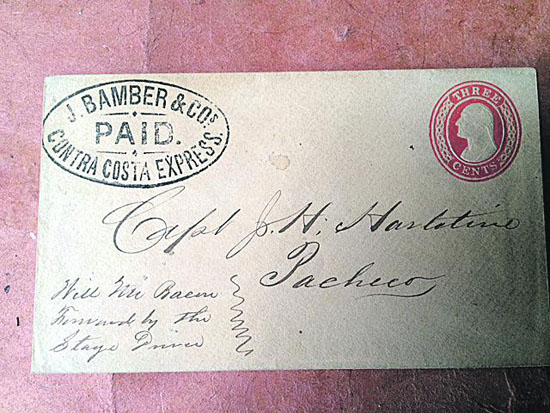 J. BAMBER & COS
PAID.
CONTRA COSTA EXPRESS.
THREE
CENTS
Capt J. H. Harlstine
Pacheco
Will Mr Bacon
Forward by the
Stage Driver